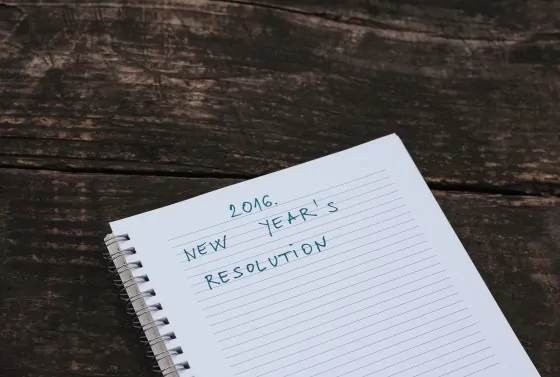 2016.
NEW YEAR'S
RESOLUTION